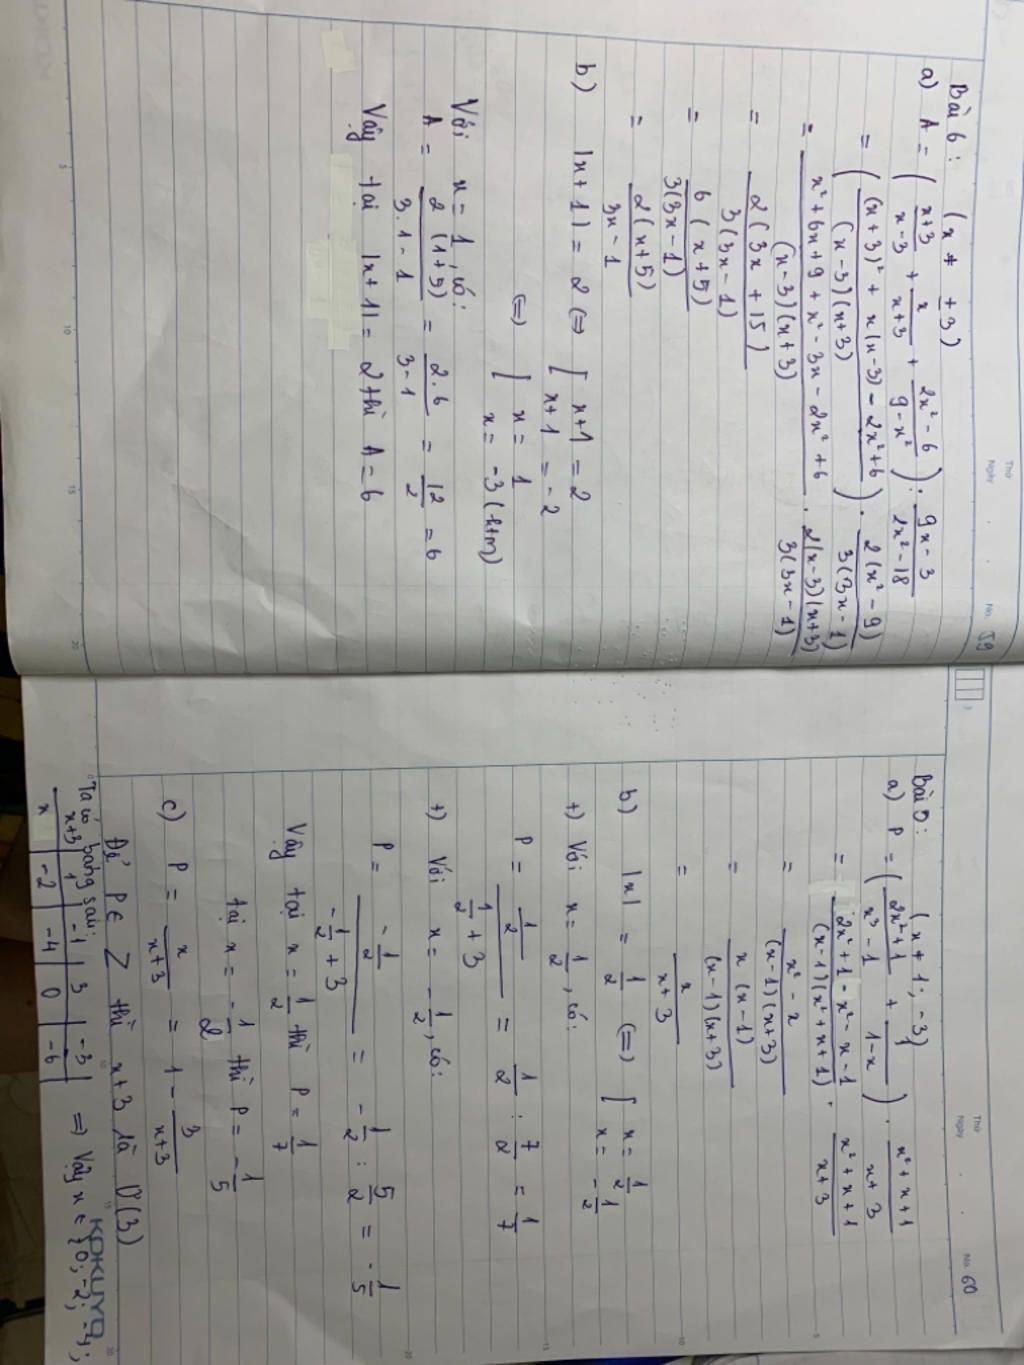 Thứ
Ngày
No. 59
Bài 6: (x ≠ ±3)
a) A = (x+3/x-3 + x/x+3 + 2x²-6/9-x²) : 9x-3/2x²-18
= ((x+3)² + x(x-3) - 2x²+6/(x-3)(x+3)) . 2(x²-9)/3(3x-1)
= x²+6x+9+x²-3x-2x²+6/(x-3)(x+3) . 2(x-3)(x+3)/3(3x-1)
= 2(3x+15)/3(3x-1)
= 6(x+5)/3(3x-1)
= 2(x+5)/3x-1
b) |x+1| = 2 ⇔ [ x+1 = 2
x+1 = -2
⇔ [ x = 1
x = -3 (ktm)
Với x = 1, có:
A = 2(1+5)/3.1-1 = 2.6/3-1 = 12/2 = 6
Vậy tại |x+1| = 2 thì A = 6
5
10
15
20
Thứ
Ngày
No. 60
(x ≠ 1; -3)
a) P = (2x²+1/x³-1 + 1/1-x) . x²+x+1/x+3
= 2x²+1-x²-x-1/(x-1)(x²+x+1) . x²+x+1/x+3
= x²-x/(x-1)(x+3)
= x(x-1)/(x-1)(x+3)
= x/x+3
b) |x| = 1/2 ⇔ [ x = 1/2
x = -1/2
+) Với x = 1/2, có:
P = 1/2/1/2+3 = 1/2 : 7/2 = 1/7
+) Với x = -1/2, có:
P = -1/2/-1/2+3 = -1/2 : 5/2 = -1/5
Vậy tại x = 1/2 thì P = 1/7
tại x = -1/2 thì P = -1/5
c) P = x/x+3 = 1 - 3/x+3
Để P ∈ Z thì x+3 là Ư(3)
Ta có bảng sau:
x+3 | 1 | -1 | 3 | -3 |
x | -2 | -4 | 0 | -6 | ⇒ Vậy x ∈ {0; -2; -4;
KOKUYO